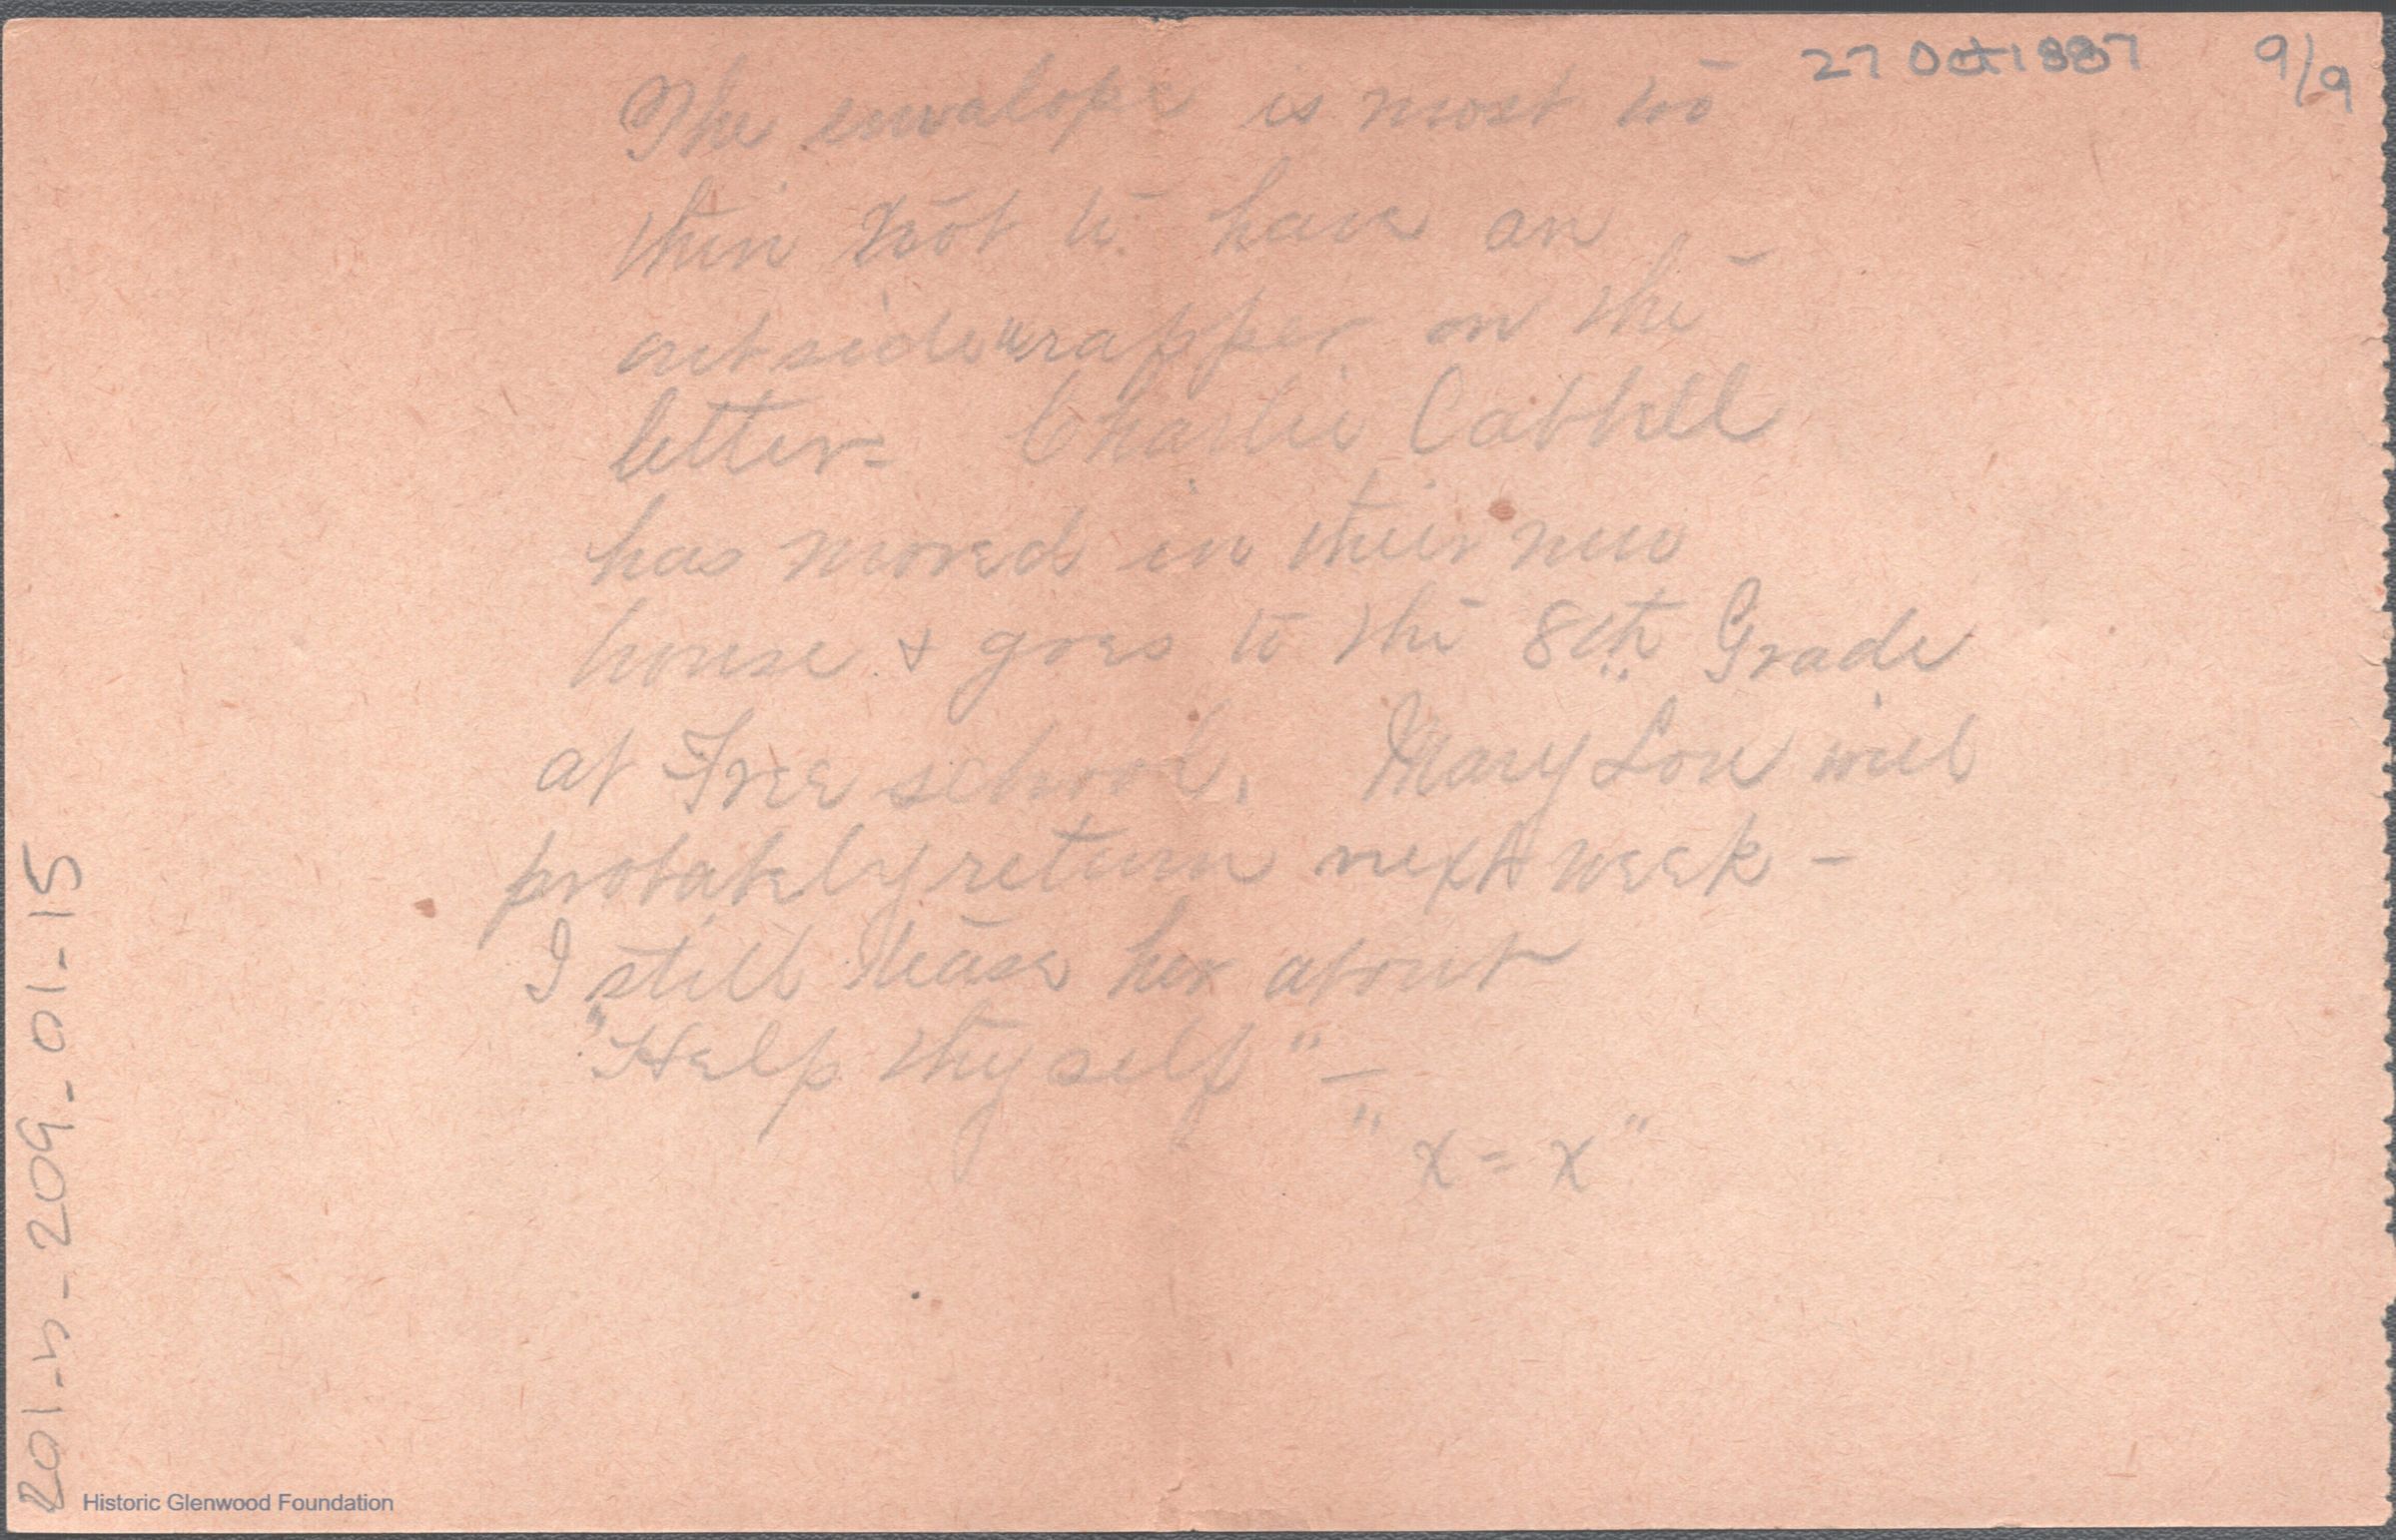 27 Oct 1887 9/9
The envalope is most too
thin not to have an
outside wrapper on the
letter= Charlie Cabhell
has moved in their new
house & goes to the 8th Grade
at Free school. Mary Lou will
probably return next week -
I still tease her about
"Help thyself" -
"x = x"
201-h-209-01-15
Historic Glenwood Foundation